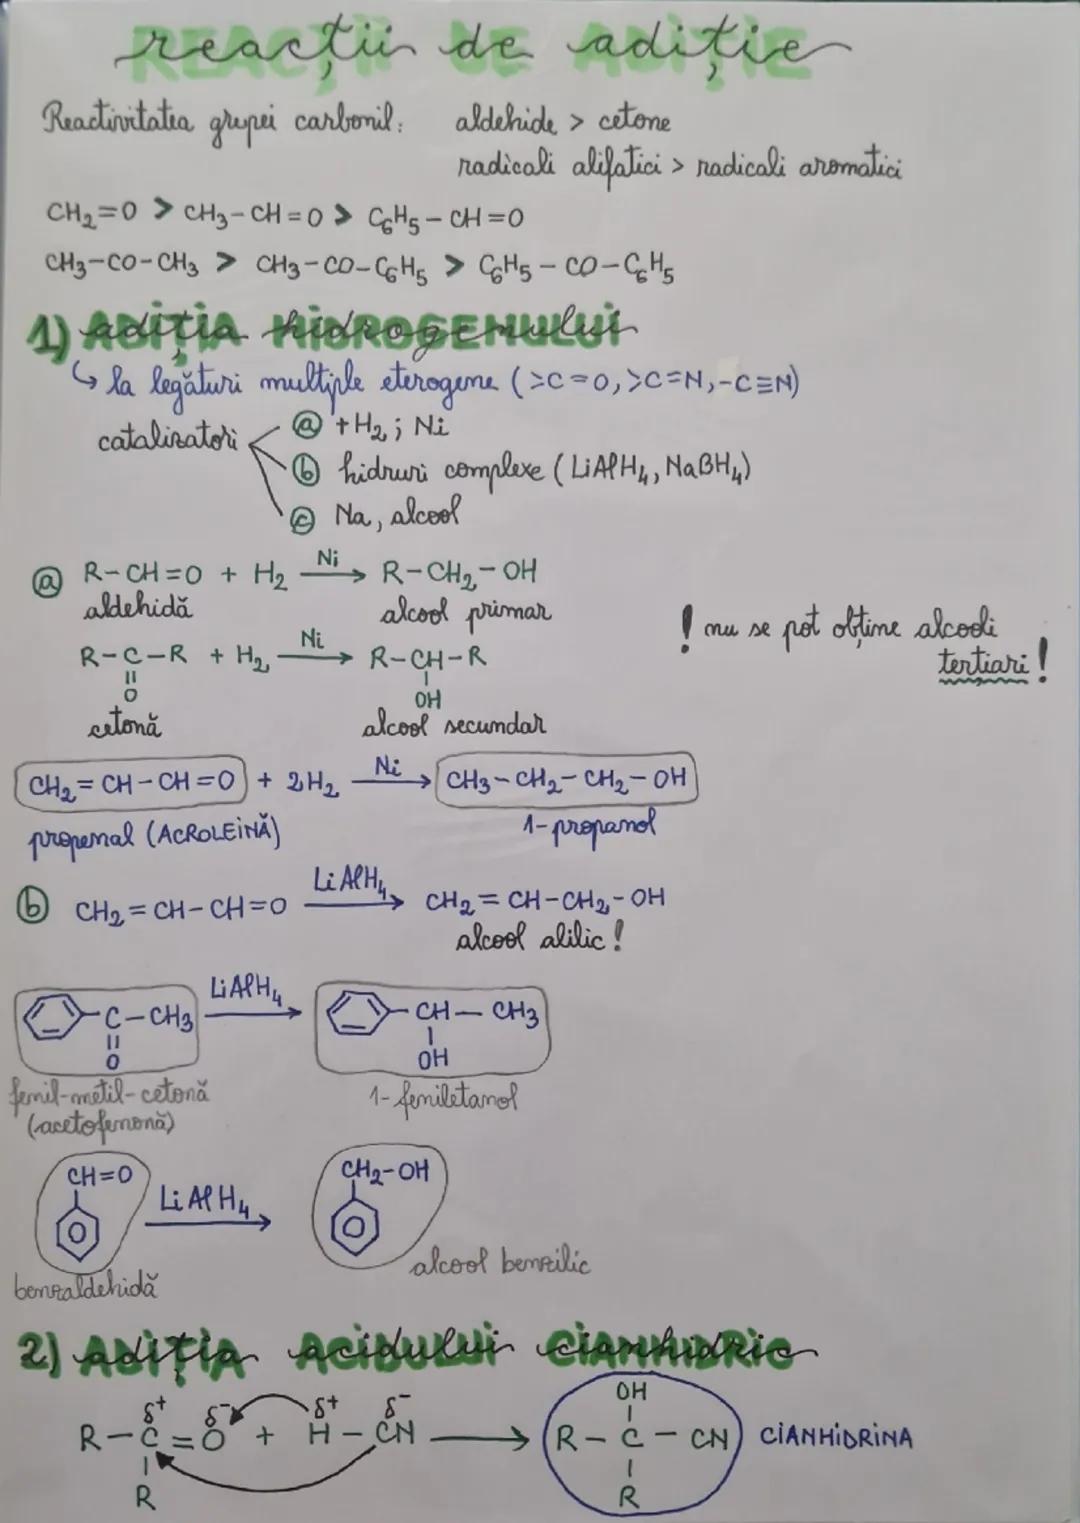 reacții de adiție
REACȚII DE ADIȚIE
Reactivitatea grupei carbonil: aldehide > cetone
radicali alifatici > radicali aromatici
CH₂=O > CH₃-CH=O > C₆H₅-CH=O
CH₃-CO-CH₃ > CH₃-CO-C₆H₅ > C₆H₅-CO-C₆H₅
1) adiția hidrogenului
↳ la legături multiple eterogene (>C=O, >C=N, -C≡N)
catalizatori
ⓐ +H₂; Ni
ⓑ hidruri complexe (LiAlH₄, NaBH₄)
ⓒ Na, alcool
ⓐ R-CH=O + H₂ Ni → R-CH₂-OH
aldehidă alcool primar
! nu se pot obține alcooli
terțiari!
R-C-R + H₂ Ni → R-CH-R
||
O OH
cetonă alcool secundar
CH₂=CH-CH=O + 2H₂ Ni → CH₃-CH₂-CH₂-OH
propenal (ACROLEINĂ) 1-propanol
ⓑ CH₂=CH-CH=O LiAlH₄ → CH₂=CH-CH₂-OH
alcool alilic!
C-CH₃ LiAlH₄ → CH-CH₃
||
O OH
fenil-metil-cetonă 1-feniletanol
(acetofenonă)
CH=O LiAlH₄ → CH₂-OH
benzaldehidă alcool benzilic
2) adiția acidului cianhidric
δ+ δ- δ+ δ- OH
R-C=O + H-CN → R-C-CN CIANHIDRINA
R R